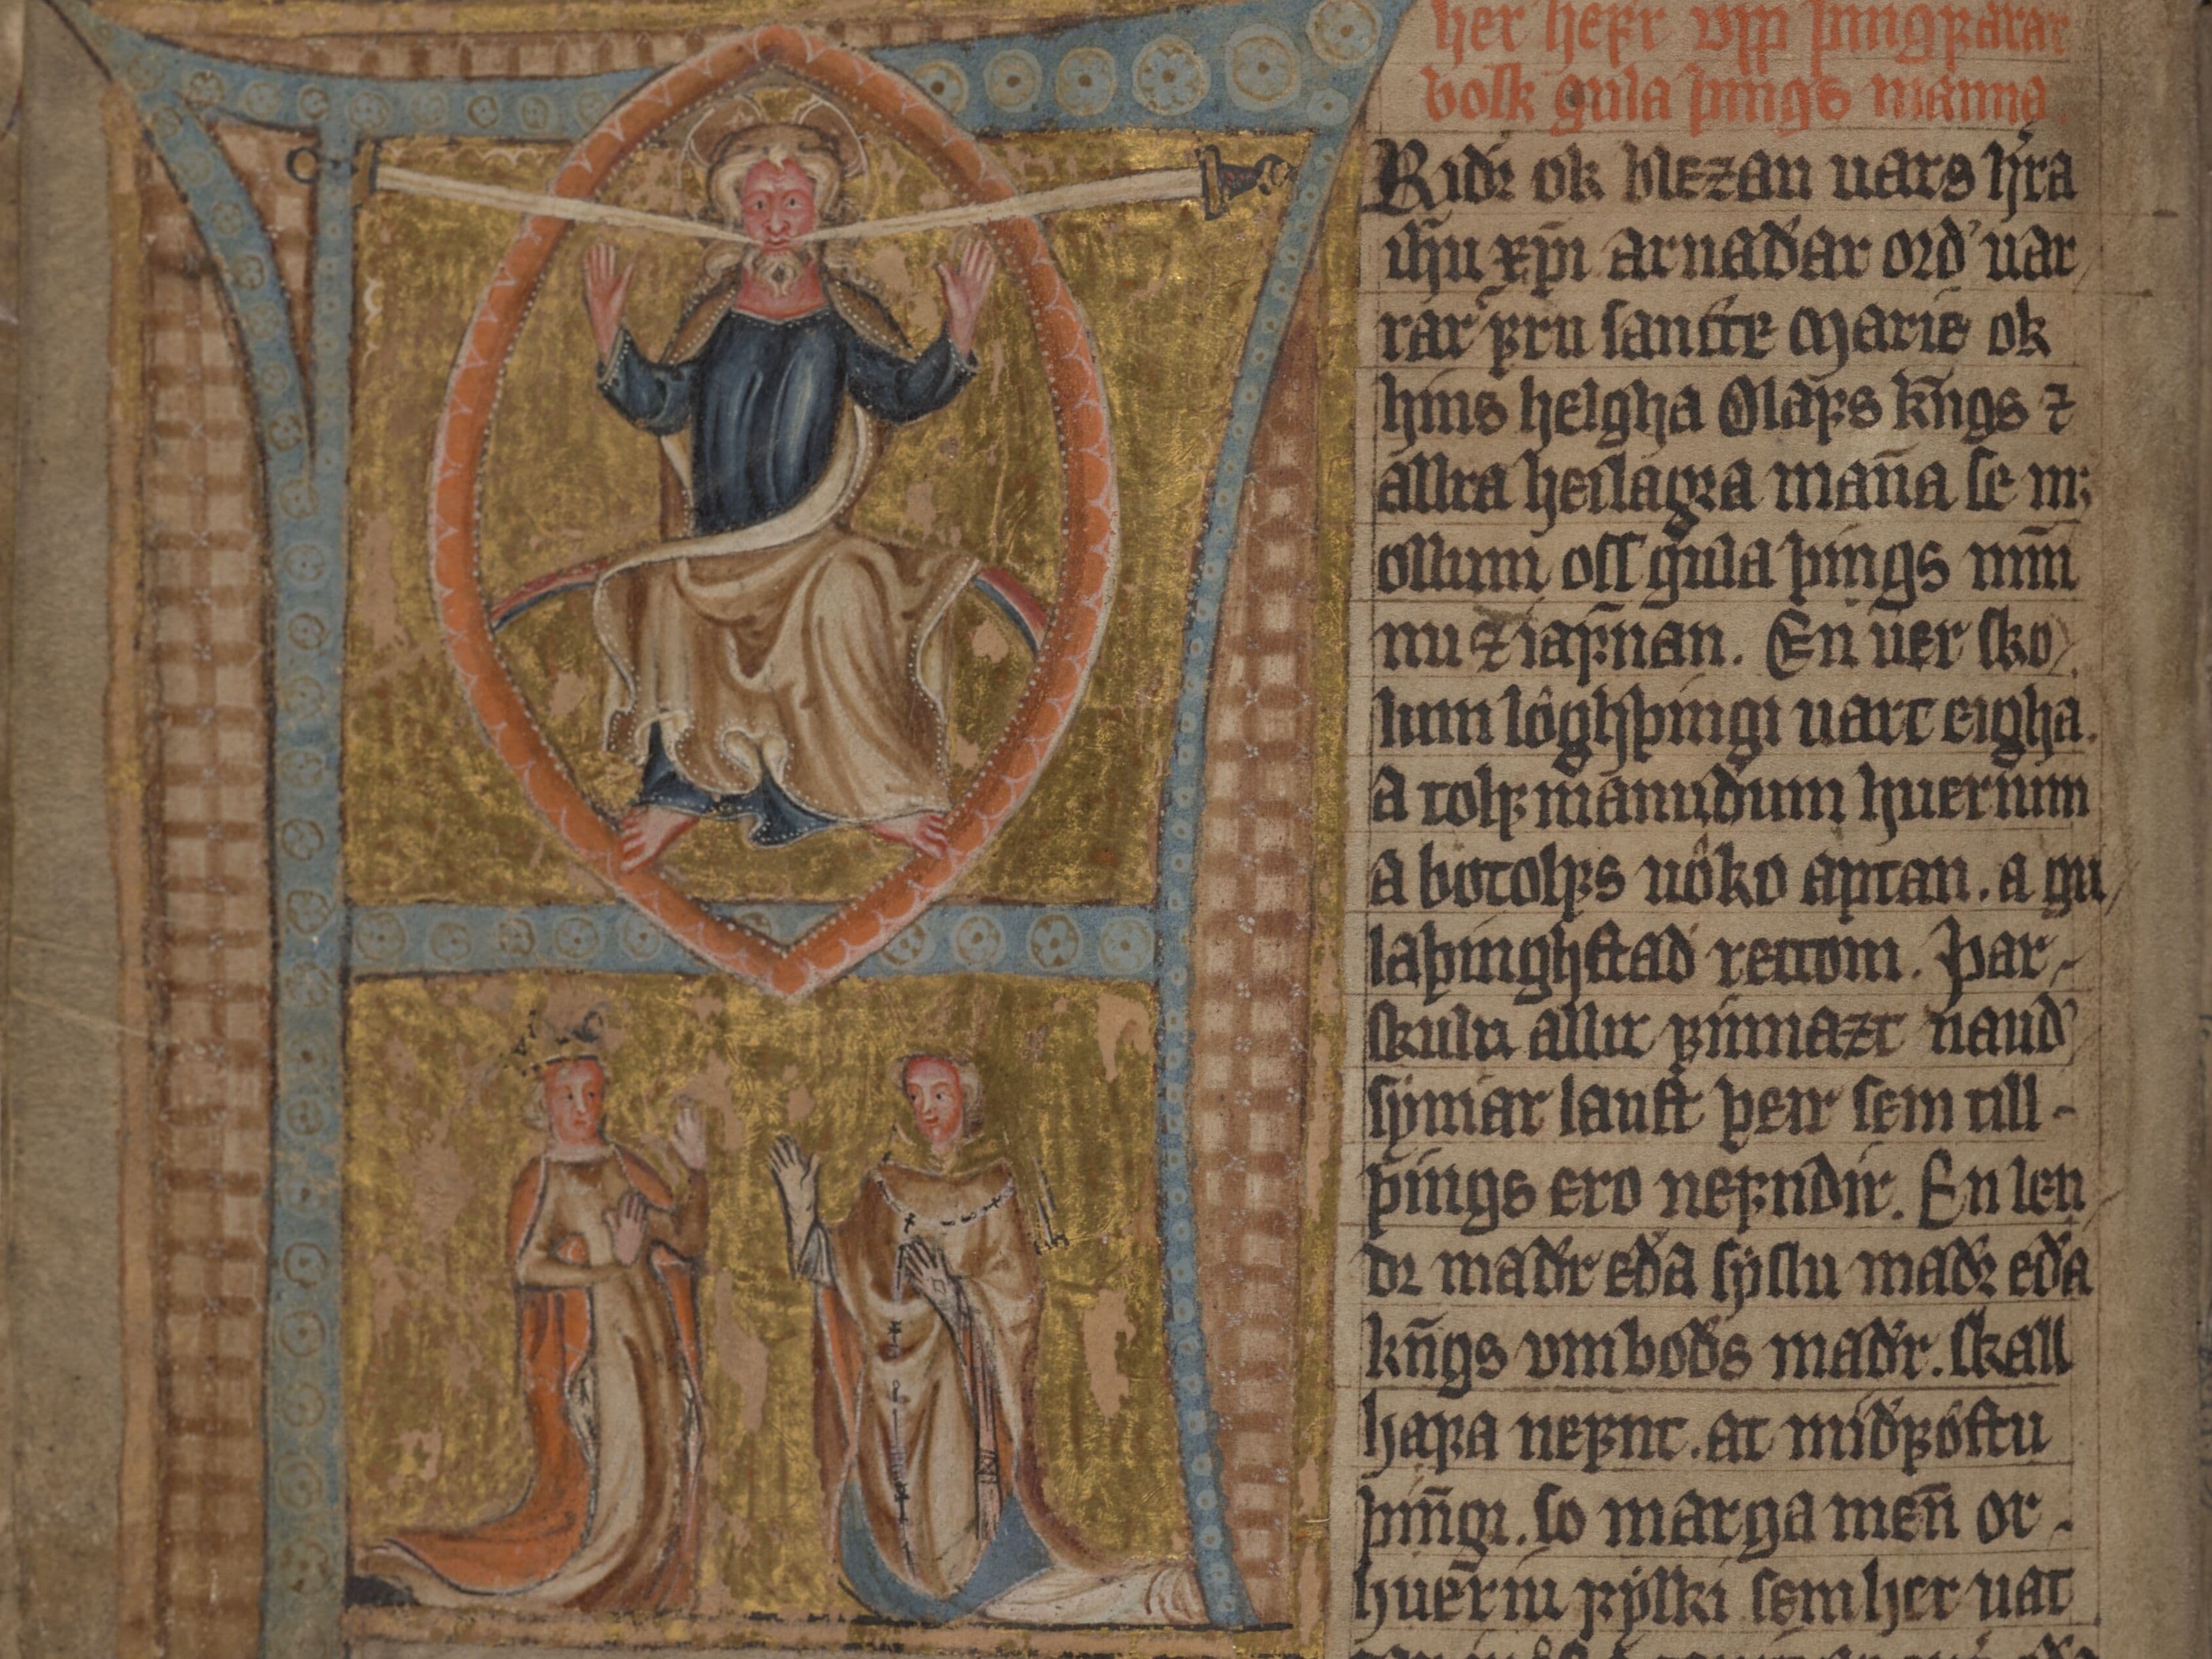 her hefr vpp þingfarar
bolk gula þings manna
Ridr ok blezan uars h̅ra
ih̅u xp̅i arnaðar orð uar
rar fru sancte Marie ok
hins helgha Olafs kn̅gs ⁊
allra heilagra man̅a se m;
ollum oss gula þings mm̅
nu ⁊ iafnan. En uer sko
lum lôghþingi uart eigha.
A tolf manuðum huerium
a botolfs uôko aptan. a gu
laþinghstað rettom. Þar
skulu allir finnazt nauð
syniar laust þeir sem till
þings ero nefndir. En len
dr maðr eða syslu maðr eða
kn̅gs vmboðs maðr. skall
hafa nefnt. at miðfôstu
þin̅gi. so marga men̅ or
huer̅iu fylki sem her uat